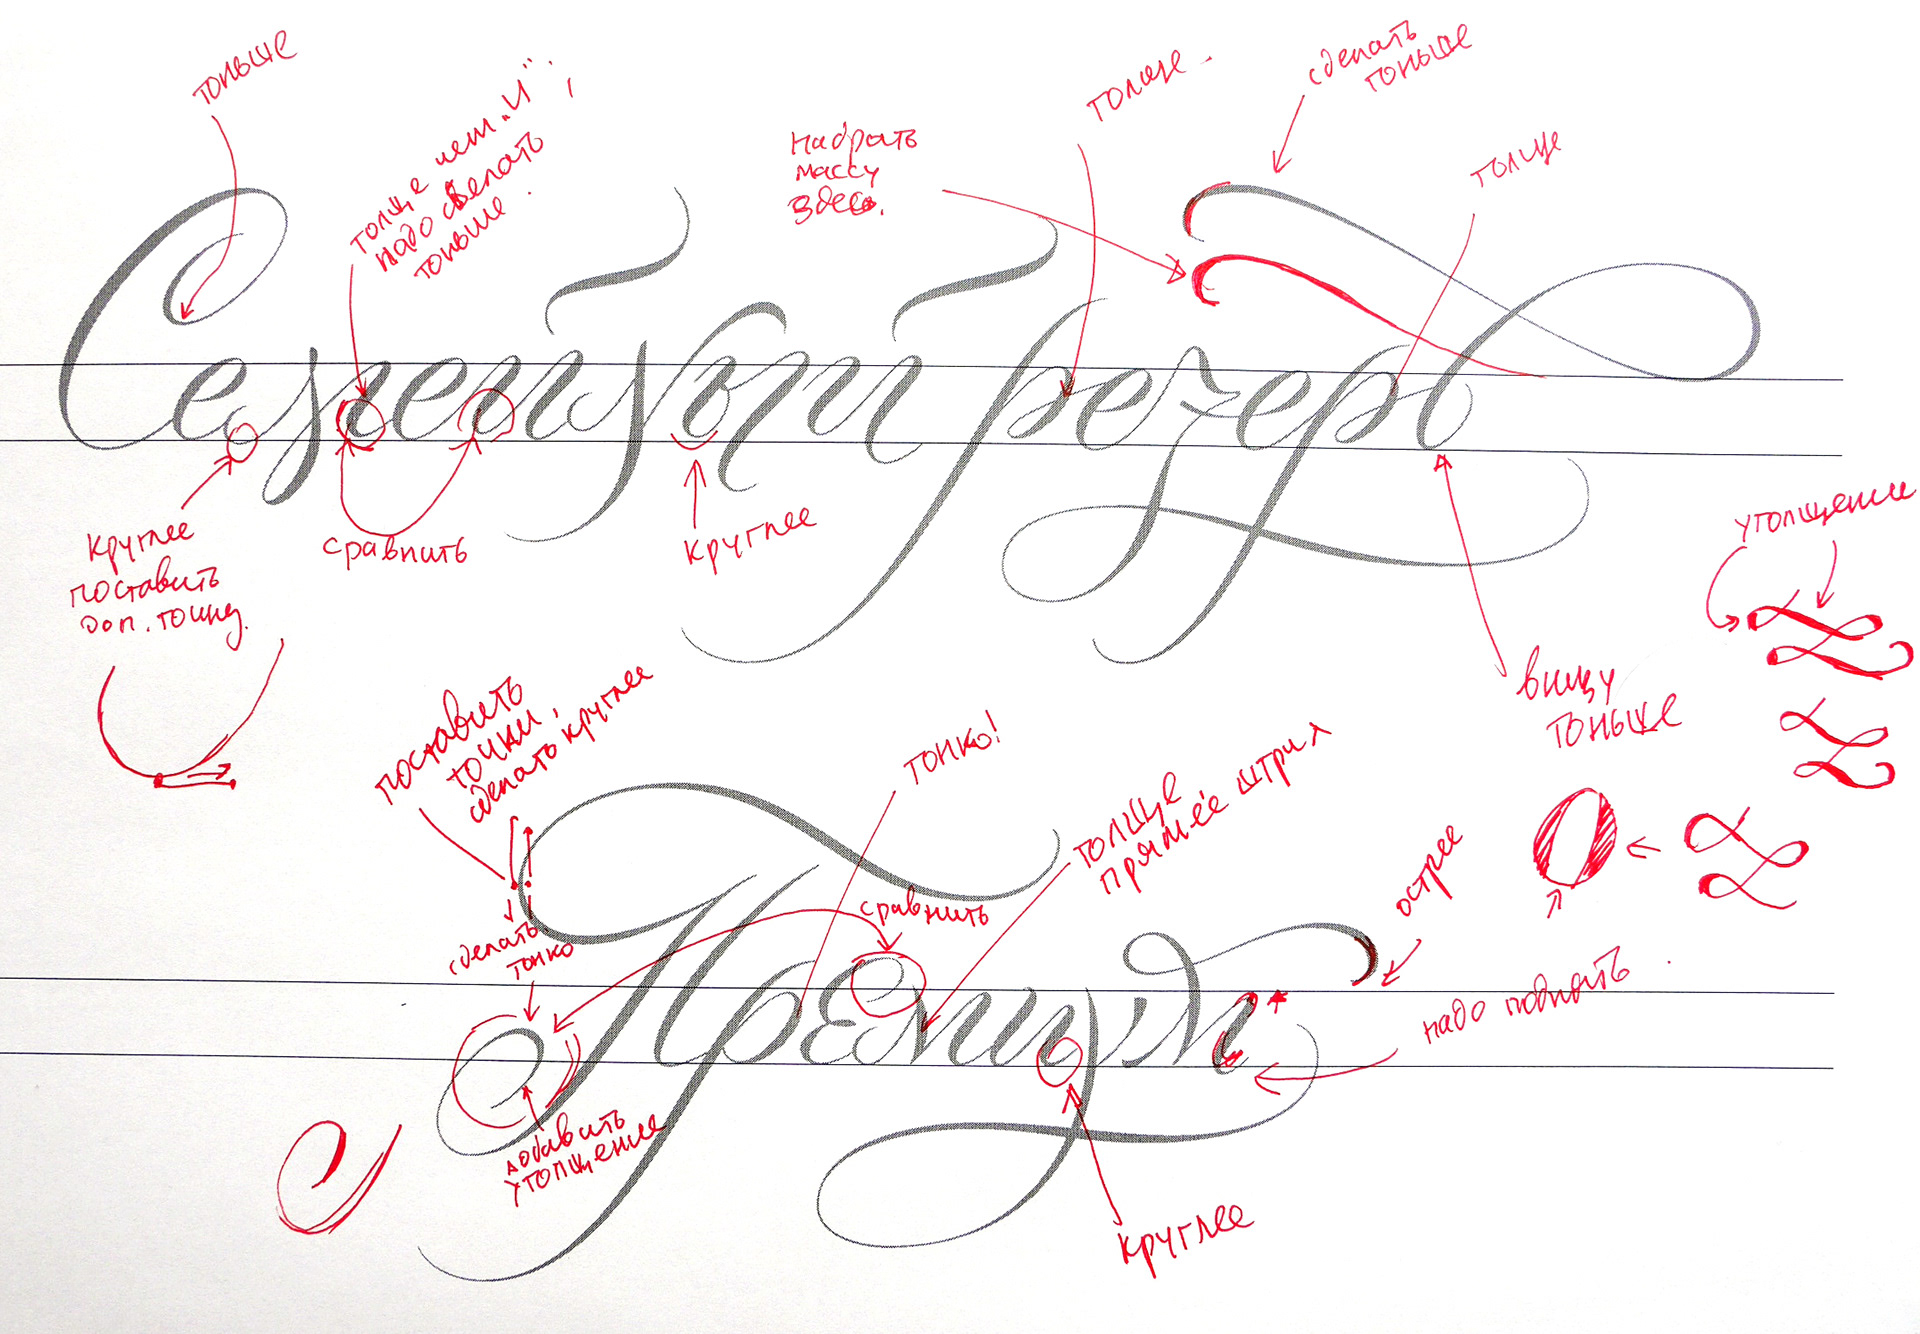 тоньше
толще чем „и“,
надо сделать
тоньше.
набрать
массу
здесь.
толще.
сделать
тоньше
толще
Семейный резерв
круглее
поставить
доп. точку.
сравнить
круглее
утолщение
внизу
тоньше
поставить
точки,
сделать круглее
тонко!
толще
прямее штрих
острее
сравнить
сделать
тонко
Премиум
надо поднять.
добавить
утолщение
круглее